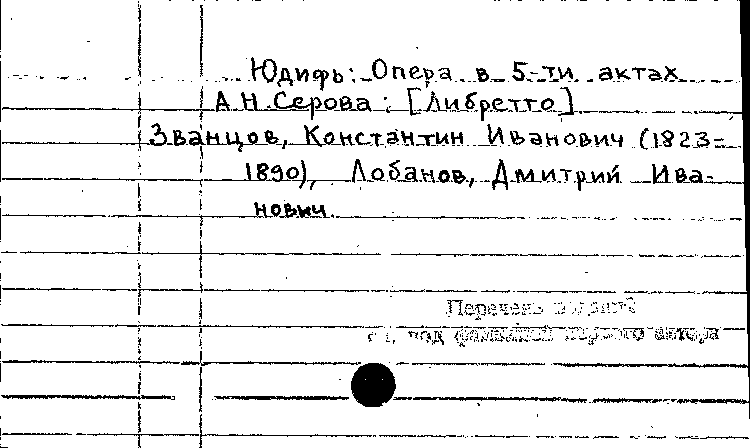 Юдифь: Опера в 5-ти актах
А.Н. Серова: [Либретто]
Званцов, Константин Иванович (1823-
1890), Лобанов, Дмитрий Ива-
нович.
Перечень изданий
см. под фамилией первого автора